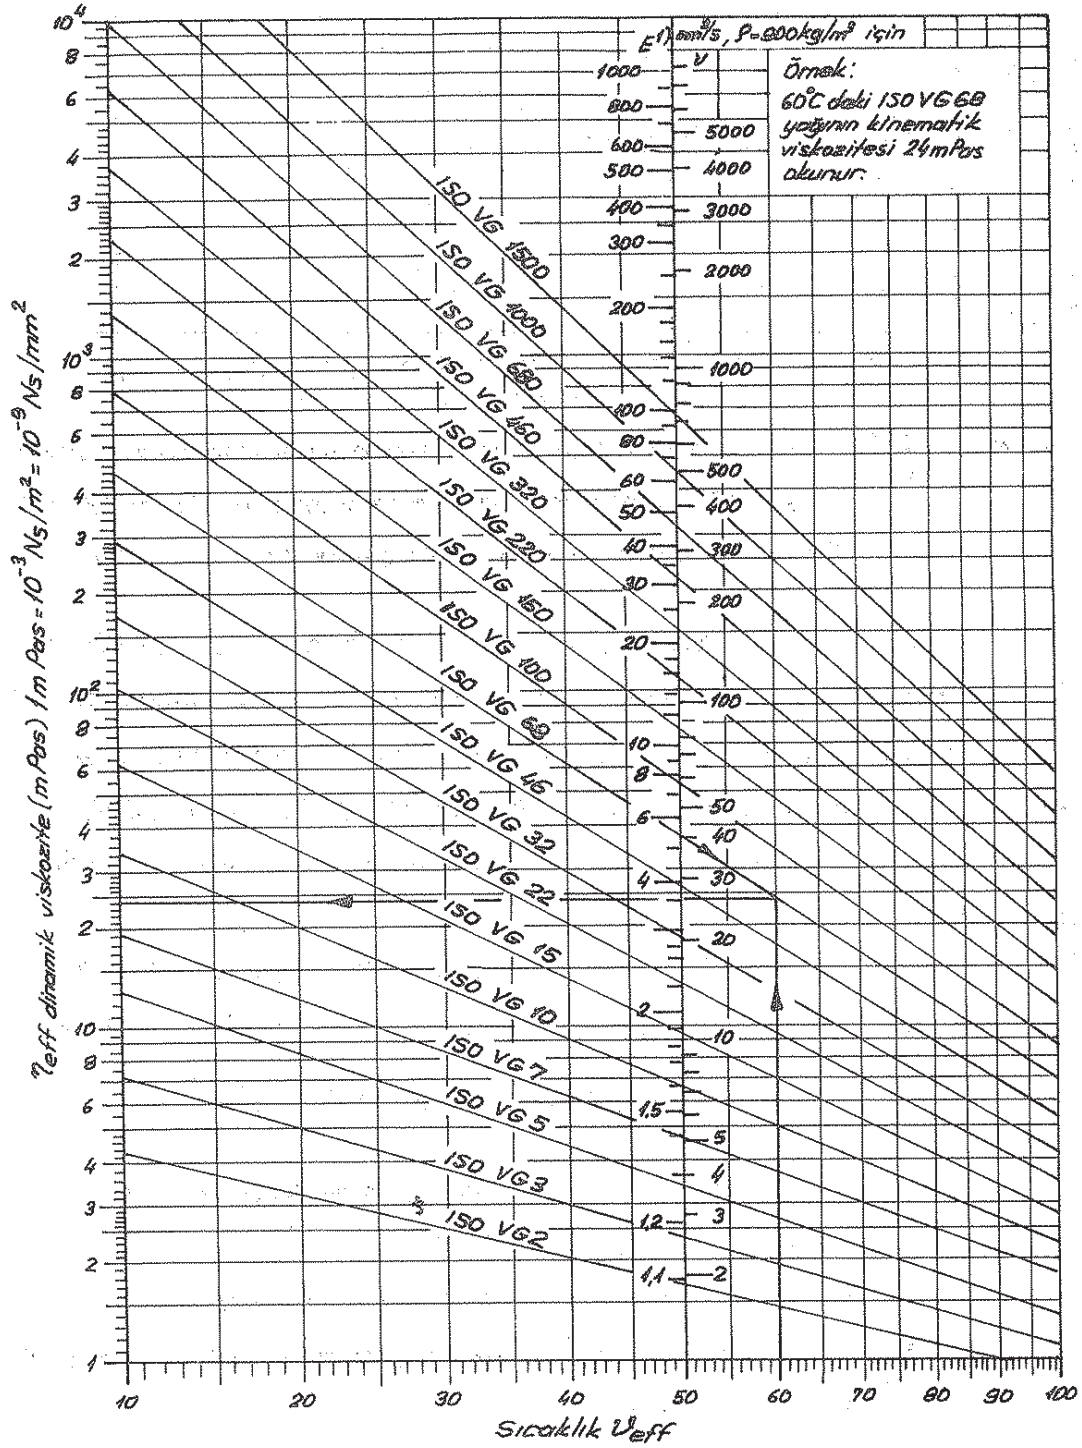 10⁴
8
6
4
3
2
10³
8
6
4
3
2
10²
8
6
4
3
2
10
8
6
4
3
2
1
η eff dinamik viskozite (mPas) 1mPas = 10⁻³ Ns/m² = 10⁻⁹ Ns/mm²
E¹) mm²/s, ρ=900kg/m³ için
ν
Örnek:
60°C daki ISO VG68
yağının kinematik
viskozitesi 24mPas
okunur.
1000
800
600
500
400
300
200
100
80
60
50
40
30
20
10
8
6
4
2
1,5
1,2
1,1
5000
4000
3000
2000
1000
500
400
300
200
100
50
40
30
20
10
5
4
3
2
ISO VG 1500
ISO VG 1000
ISO VG 680
ISO VG 460
ISO VG 320
ISO VG 220
ISO VG 150
ISO VG 100
ISO VG 68
ISO VG 46
ISO VG 32
ISO VG 22
ISO VG 15
ISO VG 10
ISO VG 7
ISO VG 5
ISO VG3
ISO VG2
10 20 30 40 50 60 70 80 90 100
Sıcaklık ϑeff